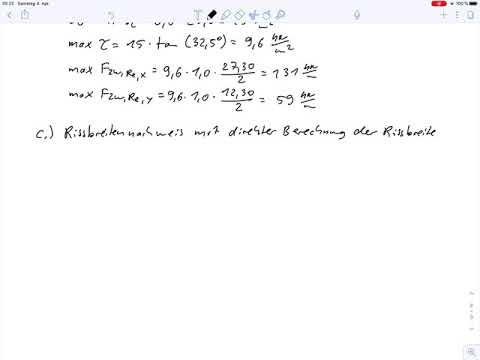 20:22 Samstag 4. Apr.
100 %
max τ = 15 · tan (32,5°) = 9,6 kN/m²
max F_Zw,Re,x = 9,6 · 1,0 · 27,30/2 = 131 kN/m
max F_Zw,Re,y = 9,6 · 1,0 · 12,30/2 = 59 kN/m
c.) Rissbreitennachweis mit direkter Berechnung der Rissbreite